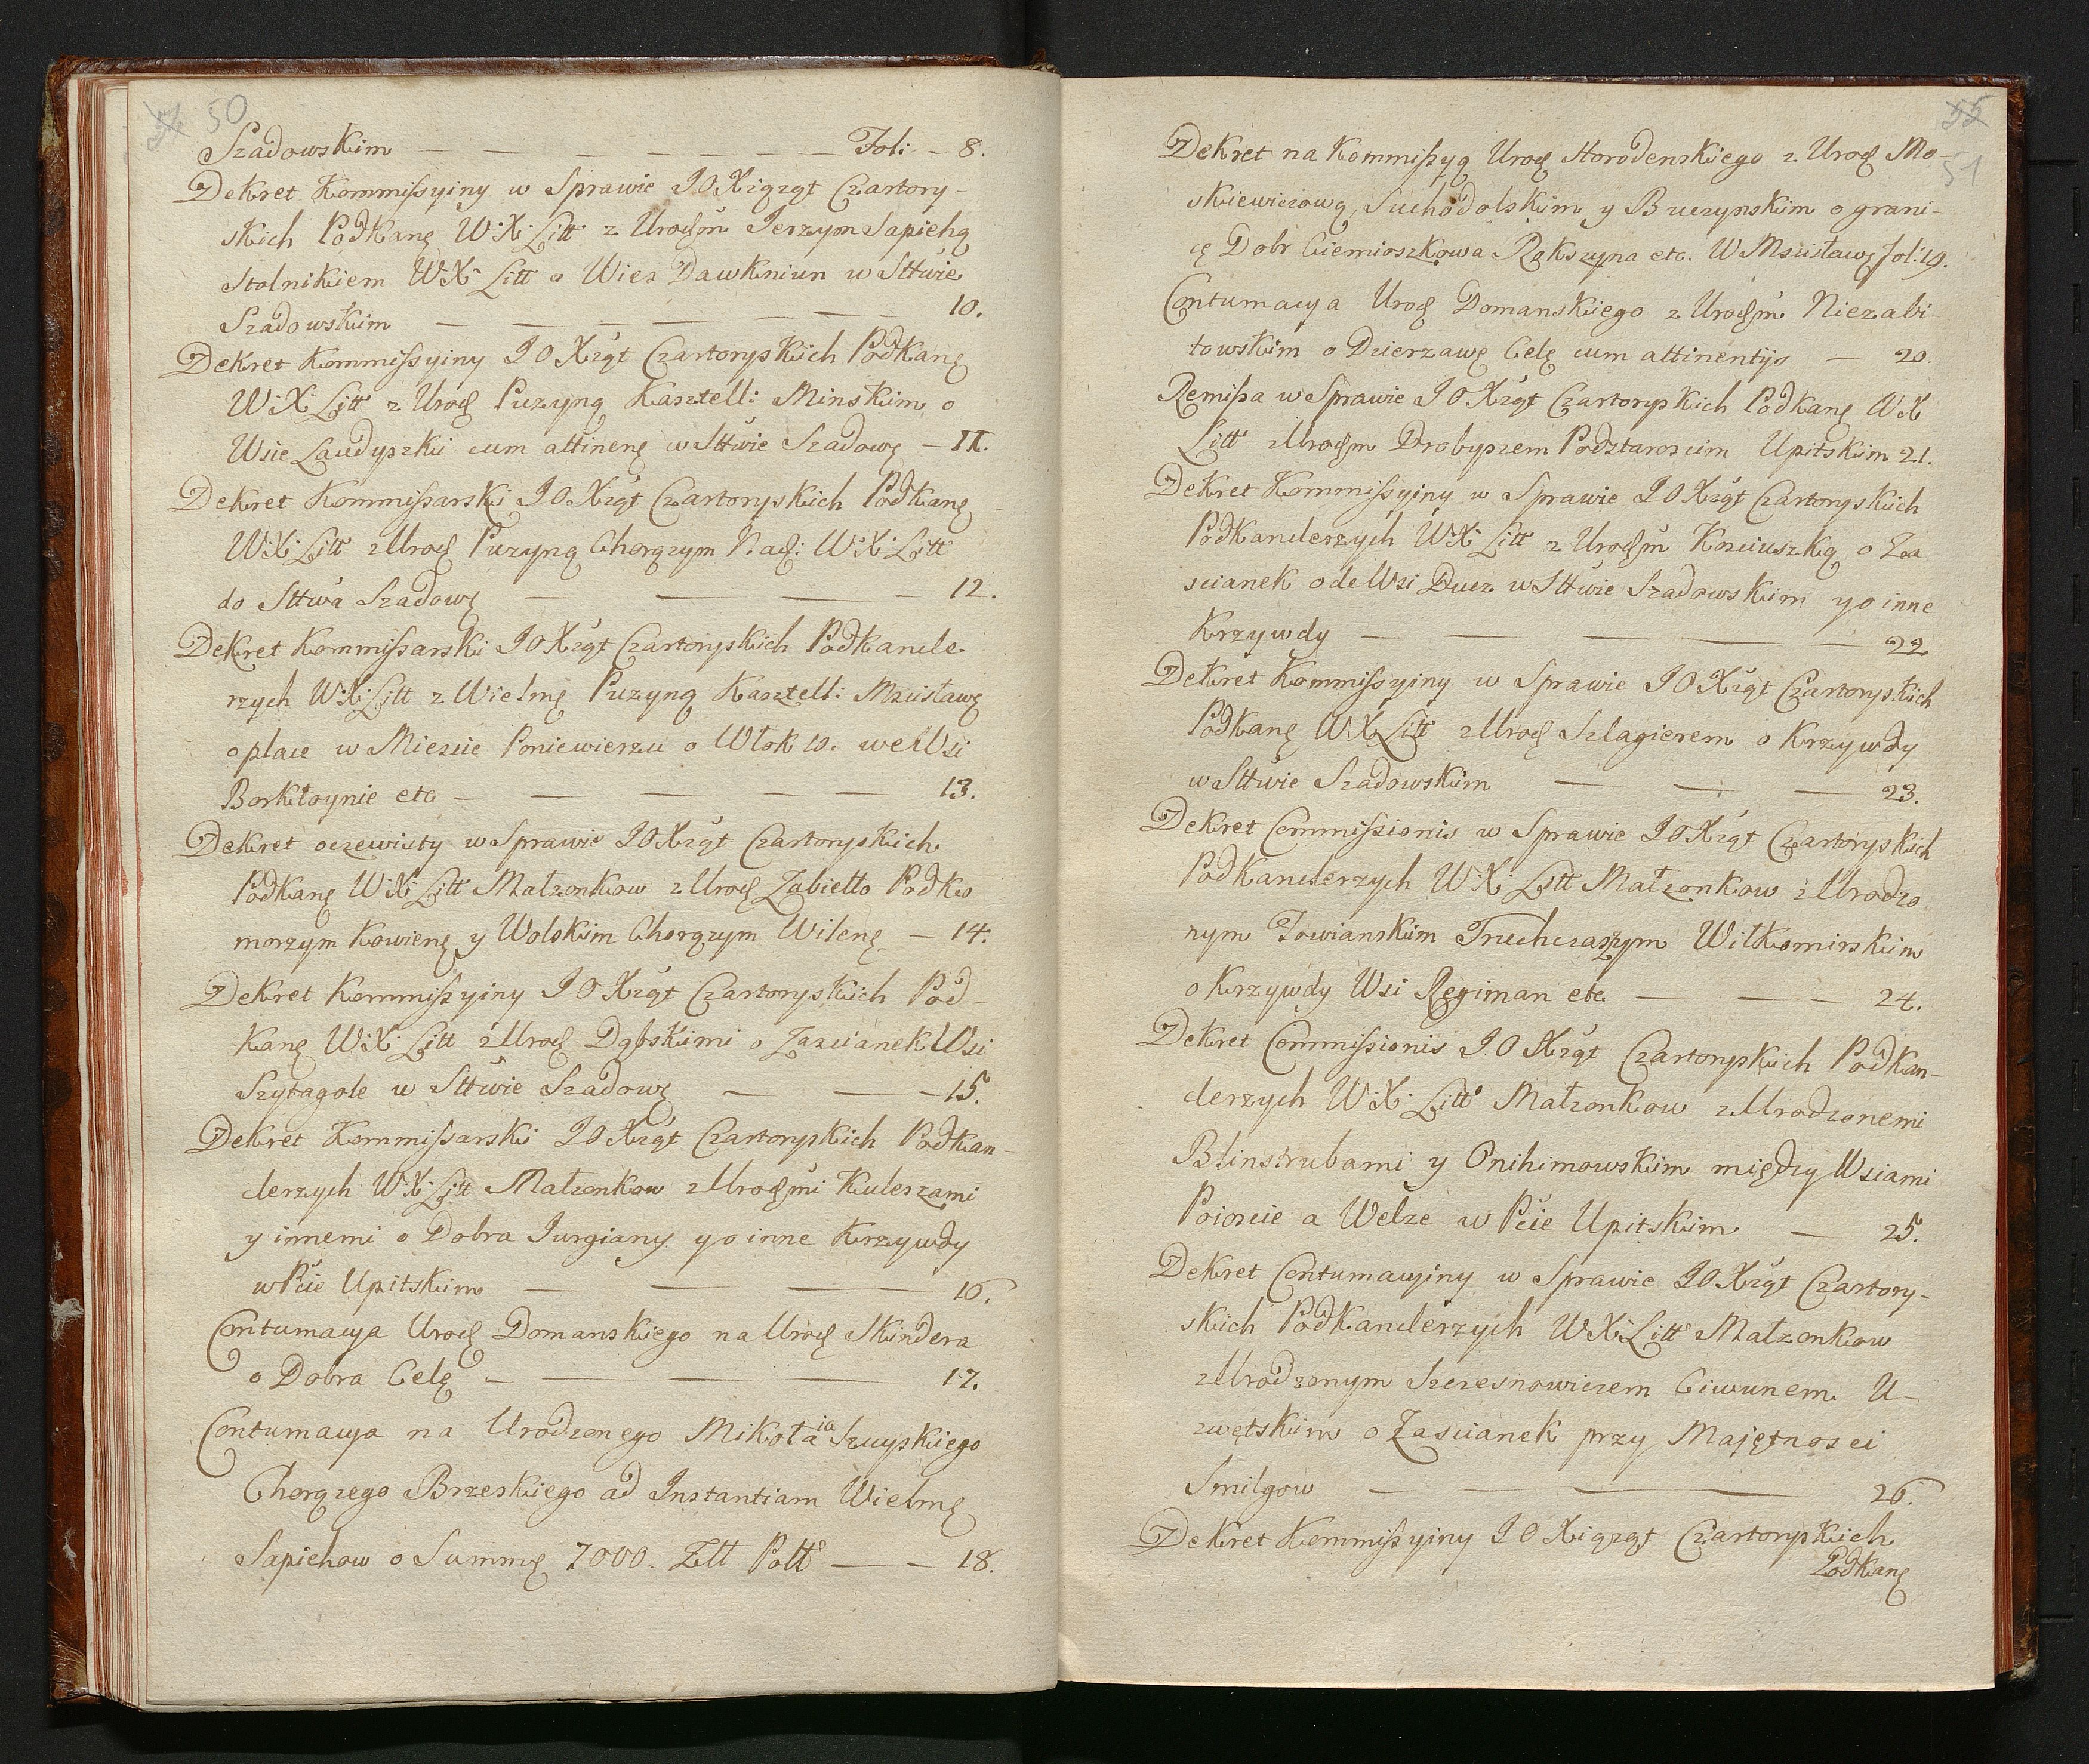 50
Szadowskim — — — — — — — Foli — 8.
Dekret Kommissyiny w Sprawie JO Xiążąt Czartory-
skich Podkanę W: X: Litt z Urodźm Jerzym Sapiehą
Stolnikiem W: X: Litt o Wieś Dawkniun w Sttwie
Szadowskim — — — — — — 10.
Dekret Kommissyiny JO Xżąt Czartoryskich Podkanę
W: X: Litt z Urodź Puzyną Kasztell: Minskim o
Wsie Laudyszki cum attinenę w Sttwie Szadowę — 11.
Dekret Kommissarski JO Xżąt Czartoryskich Podkanę
W: X: Litt z Urodź Puzyną Chorążym Nadź: W: X: Litt
do Sttwa Szadowę — — — — 12.
Dekret Kommissarski JO Xżąt Czartoryskich Podkancle-
rzych W: X: Litt z Wielmę Puzyną Kasztell: Mscisławę
o place w Miescie Poniewierzu o Włok 10. we Wsi
Borkłoynie etc — — — — — 13.
Dekret oczewisty w Sprawie JO Xżąt Czartoryskich
Podkanę W: X: Litt Małzonkow z Urodź Zabiełło Podko
morzym Kowienę y Wolskim Chorążym Wilenę — 14.
Dekret Kommissyiny JO Xżąt Czartoryskich Pod-
kanę W: X: Litt z Urodź Dąbskimi o Zascianek Wsi
Szytagole w Sttwie Szadowę — — — 15.
Dekret Kommissarski JO Xżąt Czartoryskich Podkan-
clerzych W: X: Litt Małzonkow z Urodźmi Kuleszami
y innemi o Dobra Jurgiany y o inne Krzywdy
w Pcie Upitskim — — — — 16.
Contumacya Urodź Domanskiego na Urodź Skindera
o Dobra Celę — — — — 17.
Contumacya na Urodzonego Mikołaia Szuyskiego
Chorążego Brzeskiego ad Instantiam Wielmę
Sapiehow o Summę 7000. Zltt Poltt — — 18.
51
Dekret na Kommissyą Urodź Horodenskiego z Urodź Mo-
skiewiczową, Suchodolskim y Buczynskim o grani-
cę Dobr Ciemioszkowa Rąkszyna etc. W Mscisławę fol: 19.
Contumacya Urodź Domanskiego z Urodźm Niezabi
towskim o Dzierzawę Celę cum attinentijs — 20.
Remissa w Sprawie JO Xżąt Czartoryskich Podkanę W X
Litt z Urodźm Drobyszem Podstaroscim Upitskim 21.
Dekret Kommissyiny w Sprawie JO Xżąt Czartoryskich
Podkanclerzych W: X: Litt z Urodźm Kosciuszką o Za
scianek ode Wsi Ducz w Sttwie Szadowskim y o inne
Krzywdy — — — — — 22
Dekret Kommissyiny w Sprawie JO Xżąt Czartoryskich
Podkanę W: X: Litt z Urodź Szlagierem o Krzywdy
w Sttwie Szadowskim — — — 23.
Dekret Commissionis w Sprawie JO Xżąt Czartoryskich
Podkanclerzych W: X: Litt Małzonkow z Urodzo
nym Towianskim Trechczaszym Wiłkomirskim
o Krzywdy Wsi Regiman etc — — — 24.
Dekret Commissionis J.O Xżąt Czartoryskich Podkan-
clerzych W: X: Litt Małzonkow z Urodzonemi
Blinstrubami y Onihimowskim między Wsiami
Poioscie a Welze w Pcie Upitskim — 25.
Dekret Contumacyiny w Sprawie JO Xżąt Czartory-
skich Podkanclerzych W: X: Litt Małzonkow
z Urodzonym Szczesnowiczem Ciwunem U-
zwętskim o Zascianek przy Majętnosci
Smilgow — — — — 26.
Dekret Kommissyiny JO Xiążąt Czartoryskich
Podkanę